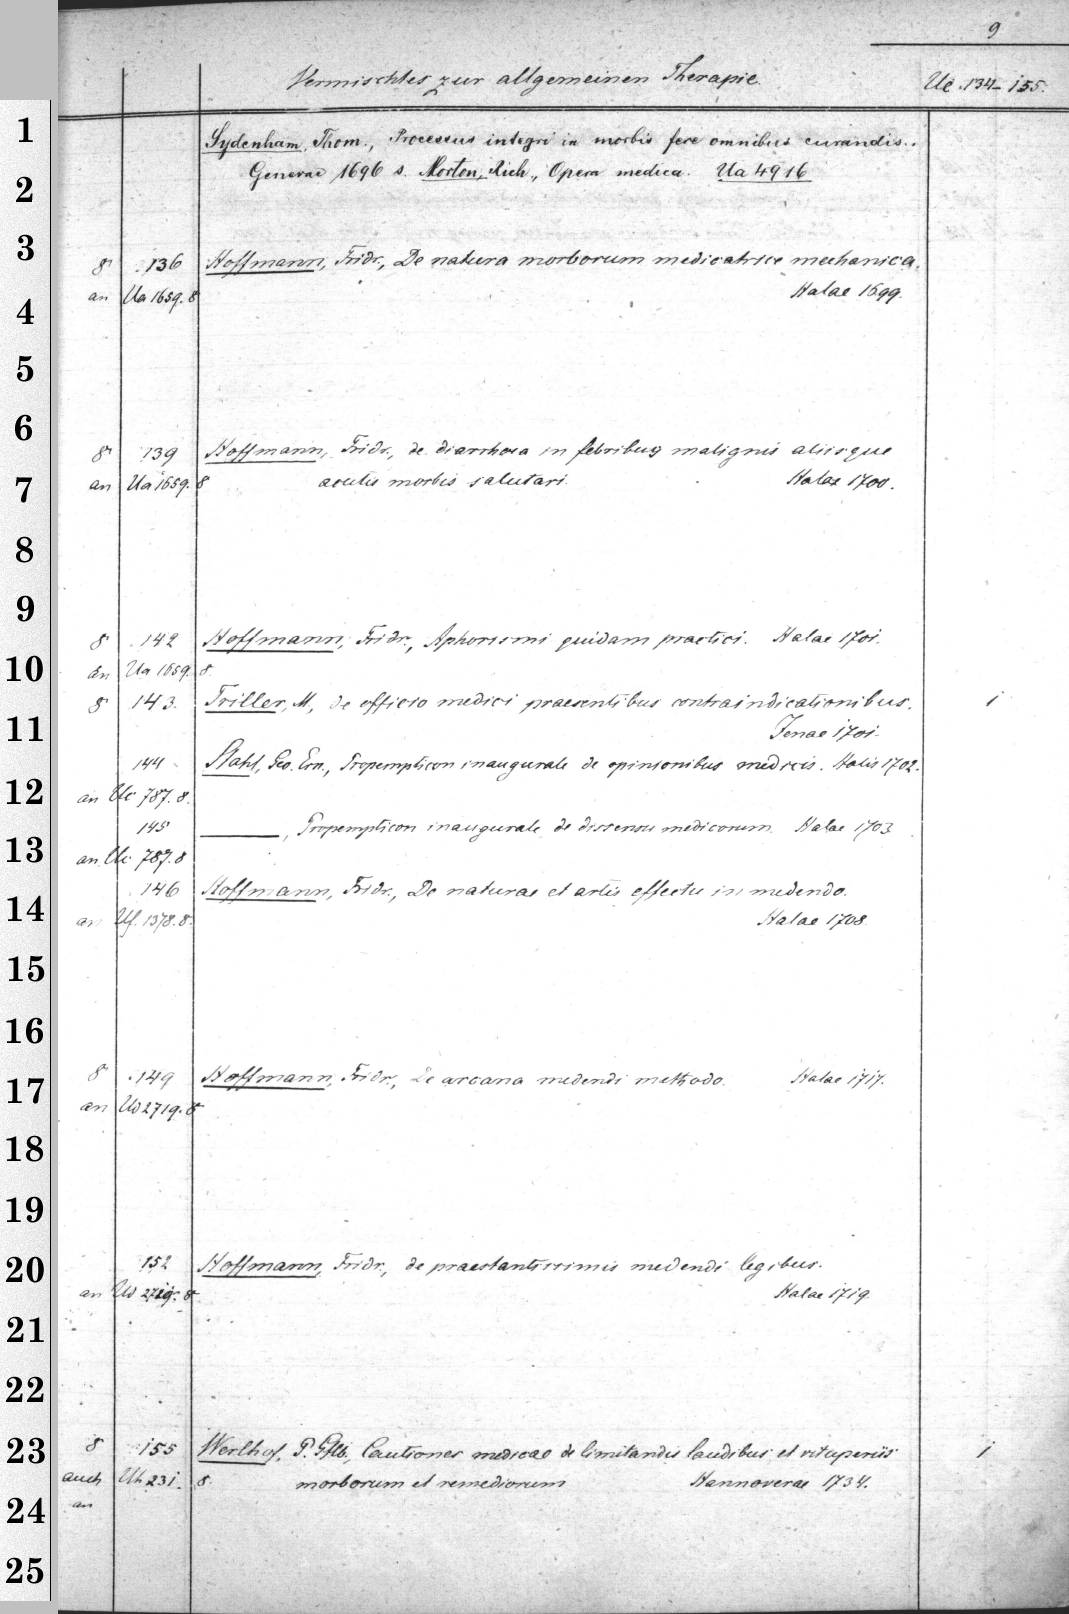 9
Vermischtes zur allgemeinen Therapie. Ue. 134-155.
1
Sydenham, Thom., Processus integri in morbis fere omnibus curandis.
2
Genevae 1696 s. Morton, Rich., Opera medica. Ua 4916
3
8° 136 Hoffmann, Fridr., De natura morborum medicatrice mechanica.
an Ua 1659. 8 Halae 1699.
4
5
6
8° 139 Hoffmann, Fridr., de diarrhoea in febribus malignis aliisque
7
an Ua 1659. 8 acutis morbis salutari. Halae 1700.
8
9
8 142 Hoffmann, Fridr., Aphorismi quidam practici. Halae 1701.
10
an Ua 1659. 8.
8 143. Triller, M, de officio medici praesentibus contraindicationibus. 1
11
Jenae 1701.
144 Stahl, Geo. Ern., Propempticon inaugurale de opinionibus medicis. Halis 1702.
12
an Uc 787. 8.
145 ———, Propempticon inaugurale de dissensu medicorum. Halae 1703
13
an Uc 787. 8
146 Hoffmann, Fridr., De naturae et artis effectu in medendo.
14
an Uf. 1378. 8. Halae 1708.
15
16
8 149 Hoffmann, Fridr., De arcana medendi methodo. Halae 1717.
17
an Ud 2719. 8
18
19
20
152 Hoffmann, Fridr., de praestantissimis medendi legibus.
an Ud 2719. 8 Halae 1719.
21
22
23
8 155 Werlhof, P. Gtlb., Cautiones medicae de limitandis laudibus et vituperiis 1
auch Uh 231. 8. morborum et remediorum Hannoverae 1734.
24
an
25